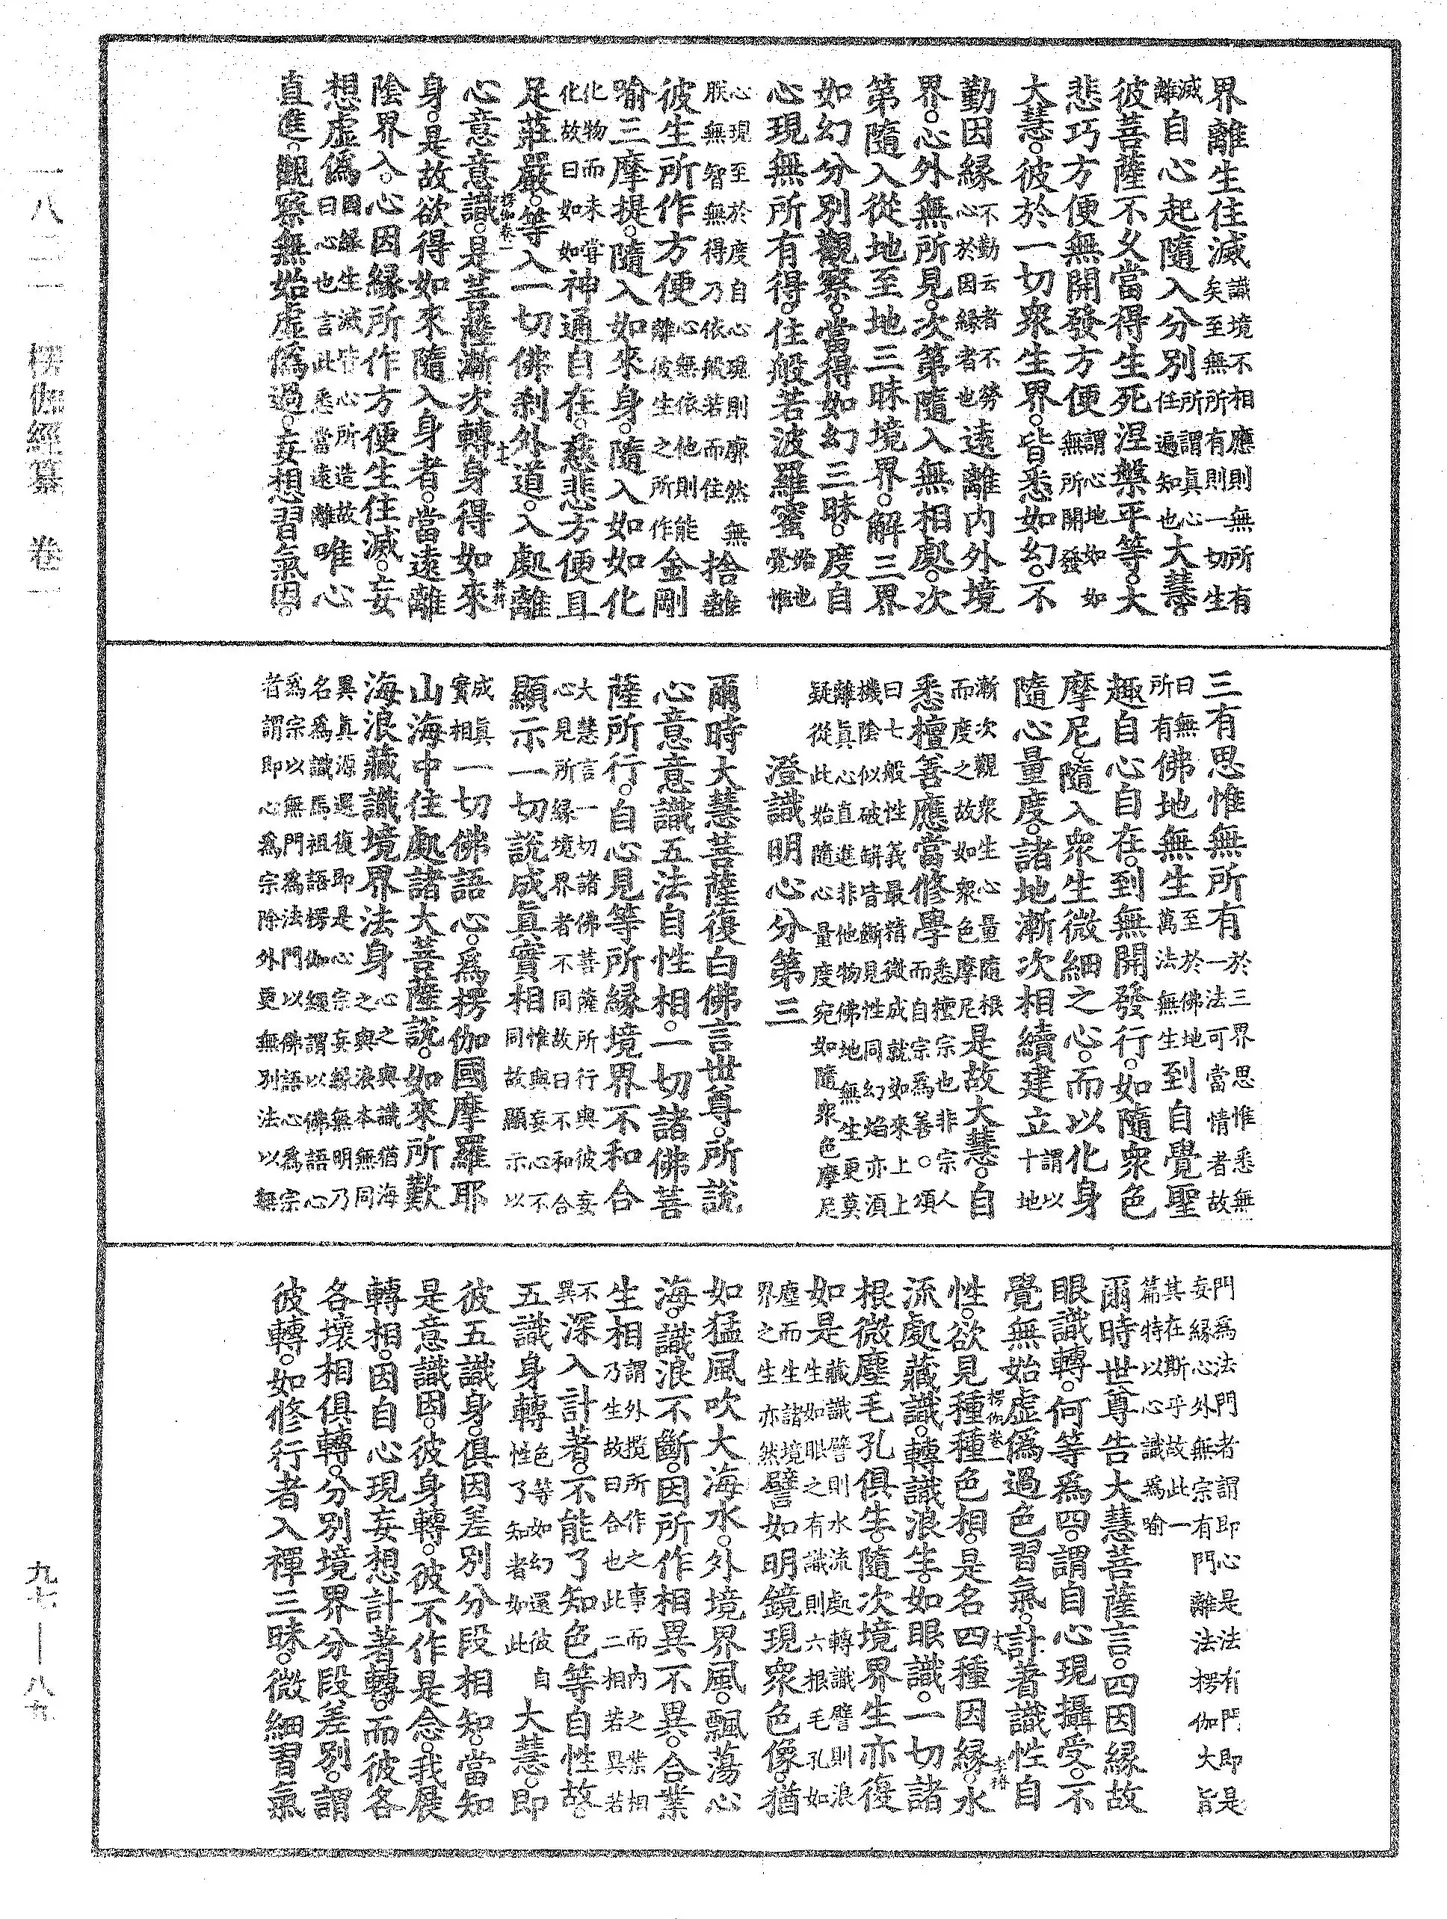 界離生住滅識境不相應則無所有矣至無所有則一切生
滅離自心起隨入分別所謂眞心任遍知也大慧。
彼菩薩不久當得生死涅槃平等。大
悲巧方便無開發方便謂心地如如無所開發
大慧。彼於一切衆生界。皆悉如幻。不
勤因緣不勤云者不勞心於因緣者也遠離內外境
界。心外無所見。次第隨入無相處。次
第隨入從地至地三昧境界。解三界
如幻分別觀察。當得如幻三昧。度自
心現無所有得。住般若波羅蜜始也覺惟
心現至於度自心現則廓然無朕無智無得乃依般若而住捨離
彼生所作方便心無依他則能離彼生之所作金剛
喻三摩提。隨入如來身。隨入如如化
化物而未嘗化故曰如如神通自在。慈悲方便且
足莊嚴。等入一切佛刹外道。入處離
心意意識。是菩薩漸次轉身得如來
身。是故欲得如來隨入身者。當遠離
陰界入。心因緣所作方便生住滅。妄
想虛僞因緣生滅皆心所造故曰心也言此悉當遠離唯心
直進。觀察無始虛僞過。妄想習氣因。
三有思惟無所有於三界思惟悉無一法可當情者故
曰無所有佛地無生至於佛地萬法無生到自覺聖
趣自心自在。到無開發行。如隨衆色
摩尼。隨入衆生微細之心。而以化身
隨心量度。諸地漸次相續建立謂以十地
漸次觀衆生心量隨根而度之故如衆色摩尼是故大慧。自
悉檀善應當修學悉檀宗也非宗人而自宗爲善。頌
曰七般性義最精微成就如來上上機陰似破缾皆斷見性同幻焰亦須
離眞心直進非他物佛地無生更莫疑從此始隨心量度宛如隨衆色摩尼
澄識明心分第三
爾時大慧菩薩復白佛言世尊。所說
心意意識五法自性相。一切諸佛菩
薩所行。自心見等所緣境界不和合
大慧言一切諸佛菩薩所行與彼妄心見所緣境界者不同故曰不和合
顯示一切說成眞實相惟與妄心不同故顯示以
成眞實相一切佛語心。爲楞伽國摩羅耶
山海中住處諸大菩薩說。如來所歎
海浪藏識境界法身心之與識猶海之與浪本無同
異眞源還復即是心宗妄緣無明乃名爲識馬祖語楞伽經謂以佛語心
爲宗以無門爲法門以佛語心爲宗者謂即心爲宗除外更無別法以無
門爲法門者謂即心是法有門即是妄緣心外無宗有門離法楞伽大旨
其在斯乎故此一篇特以心識爲喻
爾時世尊告大慧菩薩言。四因緣故
眼識轉。何等爲四。謂自心現攝受。不
覺無始虛僞過色習氣。計著識性自
性。欲見種種色相。是名四種因緣。水
流處藏識。轉識浪生。如眼識。一切諸
根微塵毛孔俱生。隨次境界生亦復
如是藏識譬則水流處轉識譬則浪生如眼之有識則六根毛孔如
塵而生諸境界之生亦然譬如明鏡現衆色像。猶
如猛風吹大海水。外境界風。飄蕩心
海。識浪不斷。因所作相異不異。合業
生相謂外攬所作之事而內之業相乃生故曰合也此二相若異若
不異深入計著。不能了知色等自性故。
五識身轉色等如幻還彼自性了知者如此大慧。即
彼五識身。俱因差別分段相知。當知
是意識因。彼身轉。彼不作是念。我展
轉相。因自心現妄想計著轉。而彼各
各壞相俱轉。分別境界分段差別。謂
彼轉。如修行者入禪三昧。微細習氣
一八三二 楞伽經纂 卷一
九七——八九